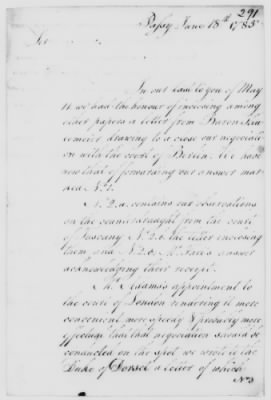 291
Passy June 18th 1785
Sir
In our last to you of May
11. we had the honour of inclosing among
other papers a letter from Baron Thu-
lemeier drawing to a close our negociati-
on with the court of Berlin. We have
now that of forwarding our answer mar-
ked No. 1.
No. 2. a. contains our observations
on the counterdraught from the court
of Tuscany No. 2. b. the letter inclosing
them and No. 2. c. Mr. Favi's answer
acknowledging their receipt.
Mr. Adams's appointment to
the court of London rendering it more
convenient more speedy & probably more
effectual that that negociation should be
conducted on the spot we wrote to the
Duke of Dorset a letter of which
No. 3